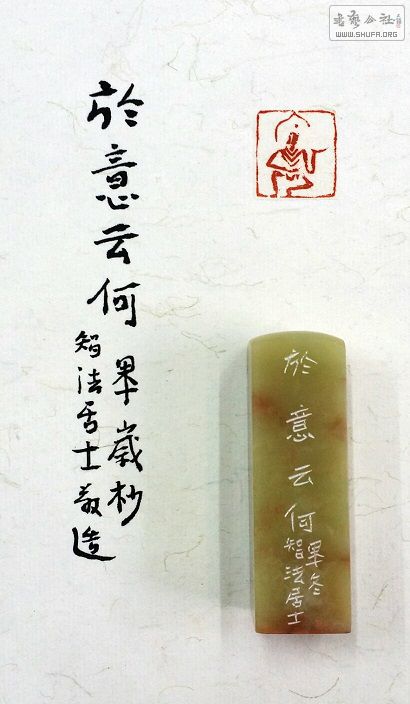 書藝公社
WWW.SHUFA.ORG
於意云何
歲杪
智法居士敬造
於意云何
冬
智法居士